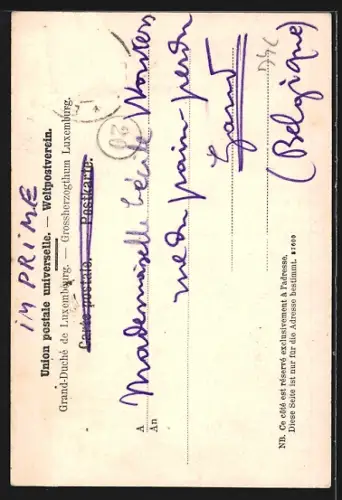 IMPRIMÉ
Union postale universelle. — Weltpostverein.
Grand-Duché de Luxembourg. — Grossherzogthum Luxemburg.
Carte postale. Postkarte.
A Mademoiselle Cécile Wouters
An
rue du pain perdu
Gand
(Belgique)
NB. Ce côté est réservé exclusivement à l'adresse.
Diese Seite ist nur für die Adresse bestimmt.